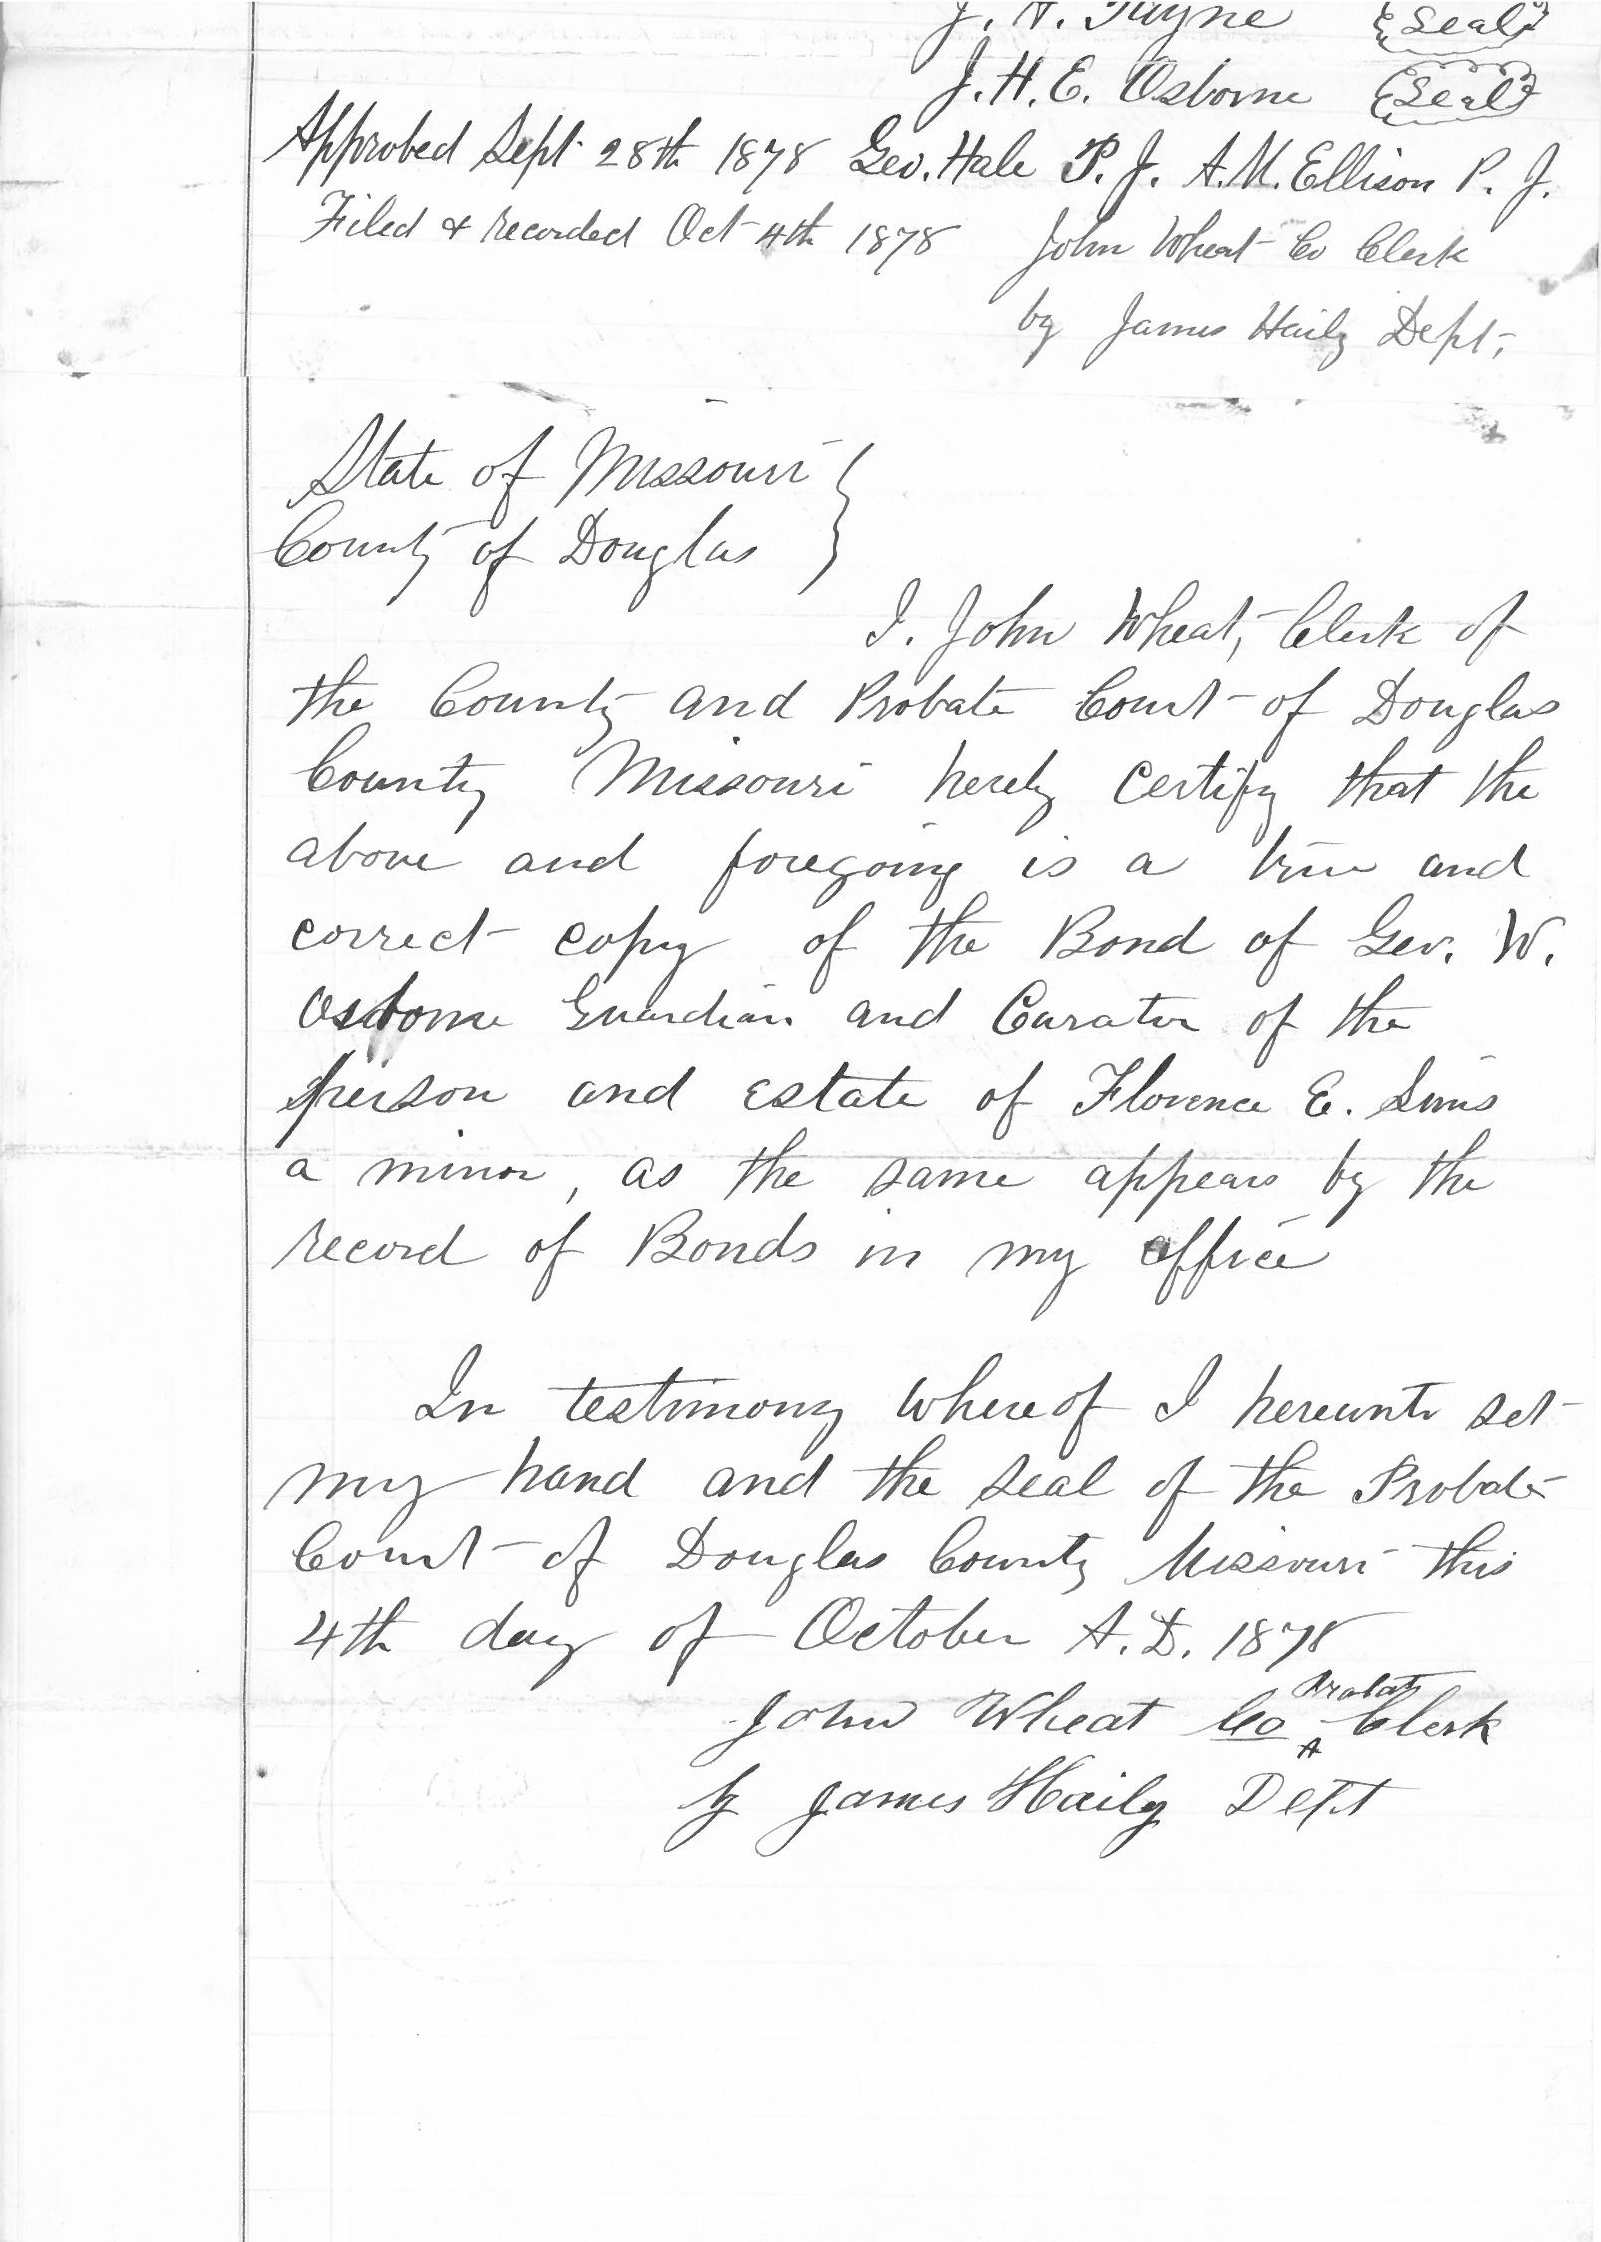 J. A. Payne {Seal}
J. H. E. Osborne {Seal}
Approbed Sept. 28th 1878 Geo. Hale P. J. A. M. Ellison P. J.
Filed & recorded Oct 4th 1878 John Wheat Co Clerk
by James Haily Dept,
State of Missouri }
County of Douglas }
I. John Wheat, Clerk of
the County and Probate Court of Douglas
County Missouri hereby certify that the
above and foregoing is a true and
correct copy of the Bond of Geo. W.
Osborne Guardian and Curator of the
person and estate of Florence E. Sims
a minor, as the same appears by the
record of Bonds in my office
In testimony whereof I hereunto set
my hand and the seal of the Probate
Court of Douglas County Missouri this
4th day of October A. D. 1878
Probate
John Wheat Co ^ Clerk
by James Haily Dept